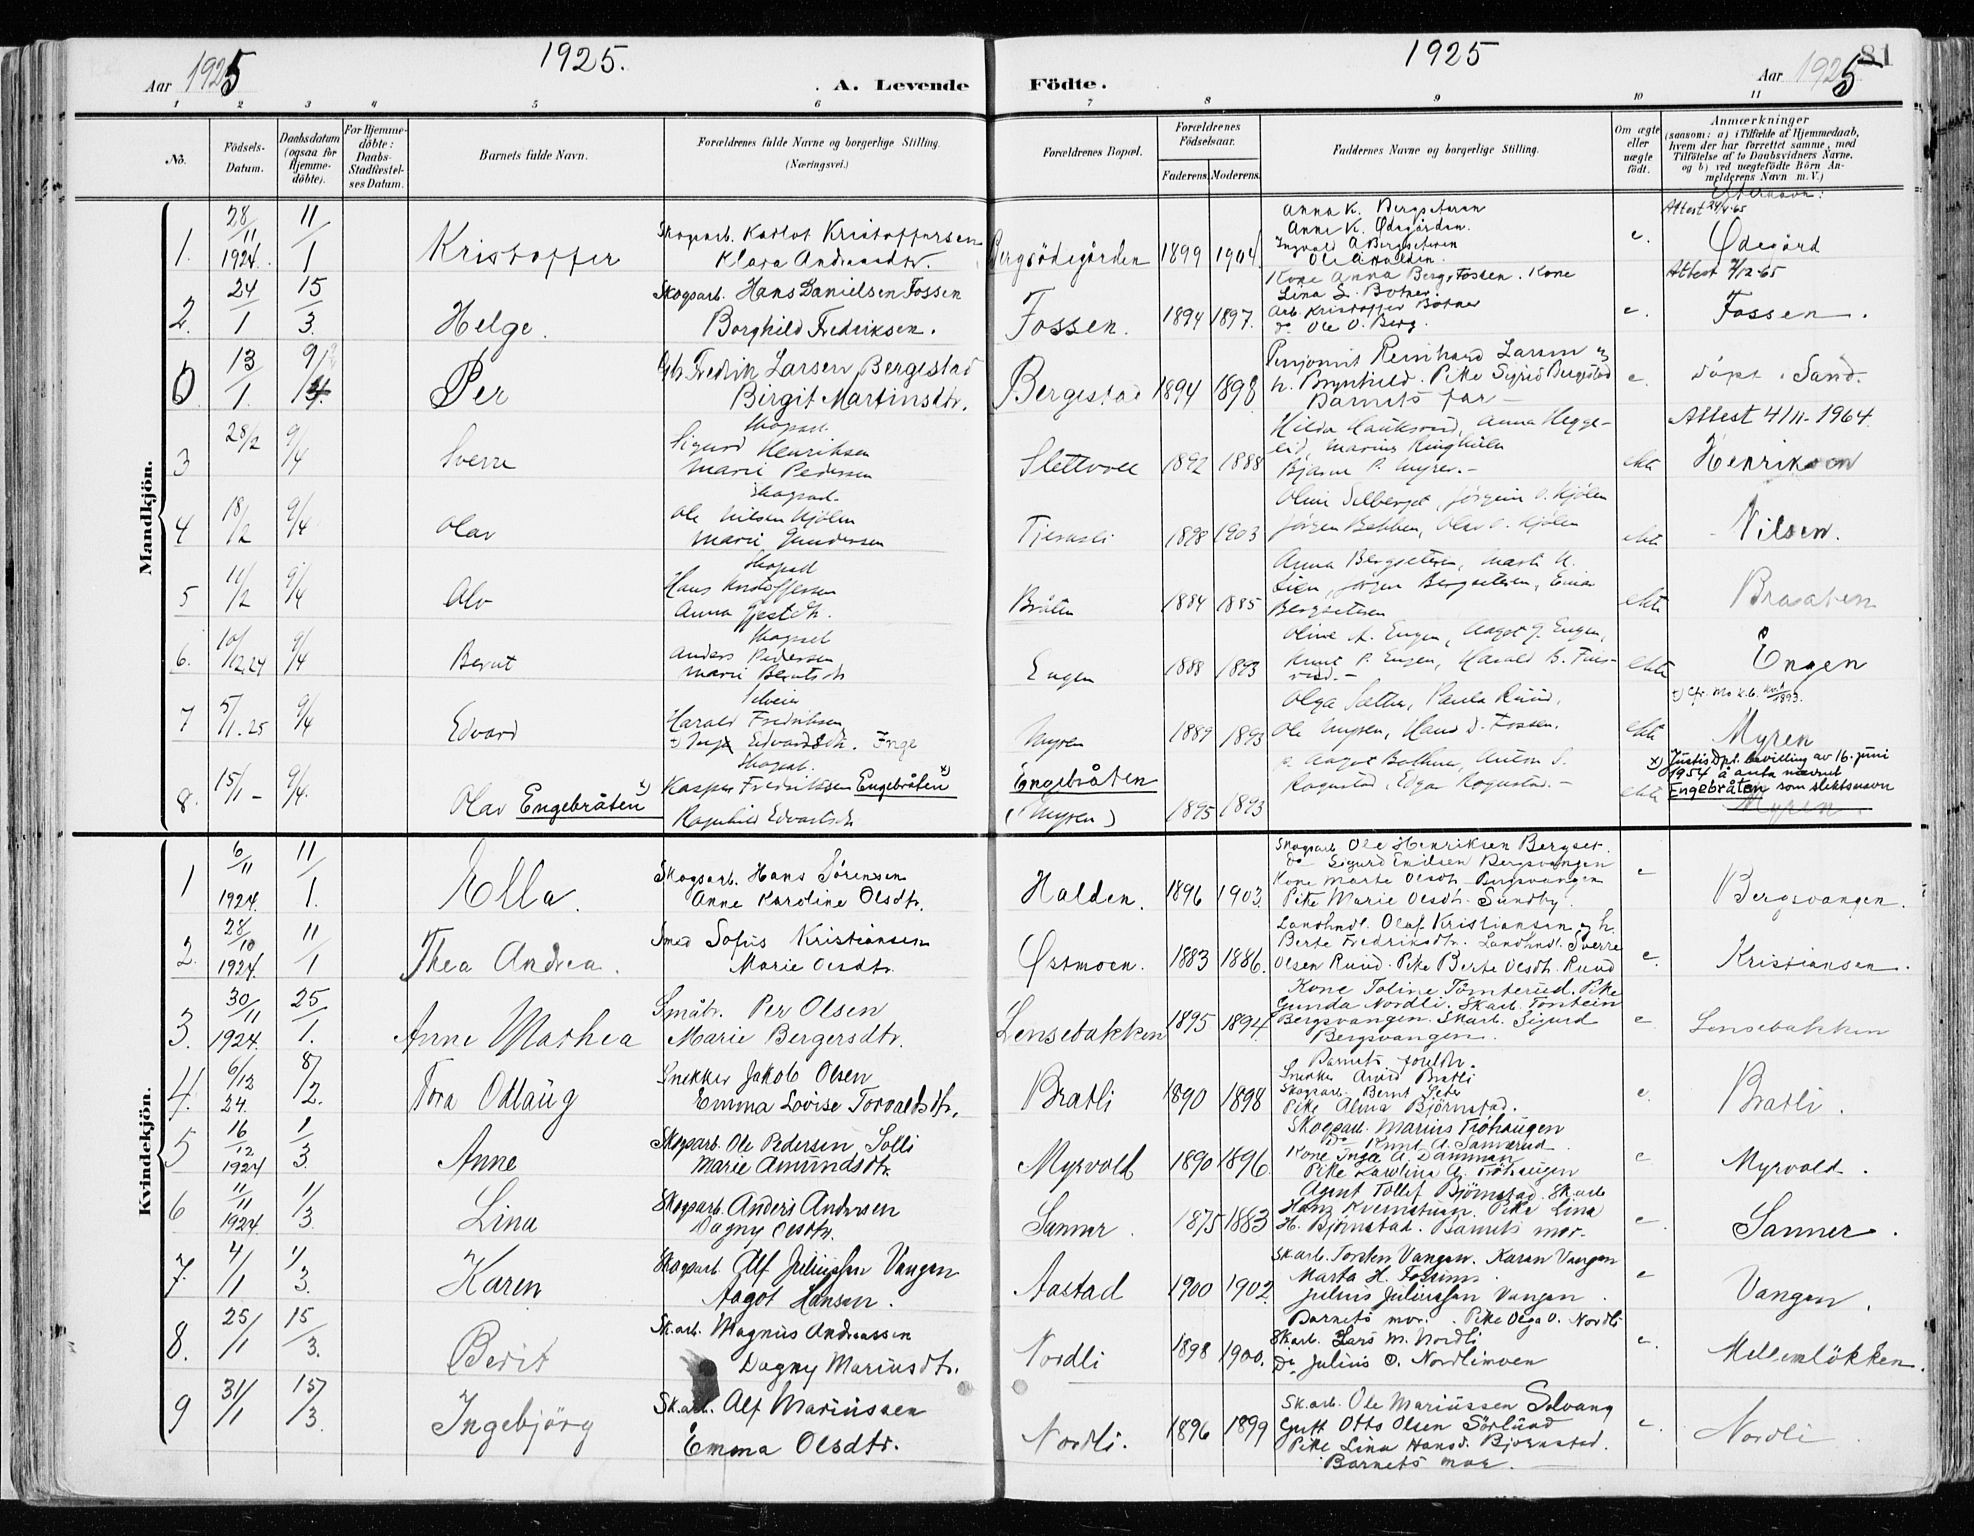 1925.
1925
81
Aar 1925
A. Levende
Födte.
Aar 1925
1 2 3 4 5 6 7 8 9 10 11
No.
Födsels-Datum.
Daabsdatum (ogsaa for Hjemme-döbte).
For Hjemme-döbte: Daabs-Stadfæstelses Datum.
Barnets fulde Navn.
Forældrenes fulde Navne og borgerlige Stilling. (Næringsvei.)
Forældrenes Bopæl.
Forældrenes Födselsaar.
Faderens. Moderens.
Faddernes Navne og borgerlige Stilling.
Om ægte eller uægte födt.
Anmærkninger
(saasom: a) i Tilfælde af Hjemmedaab, hvem der har forrettet samme, med Tilföielse af to Daabsvidners Navne, og b) ved uægtefödte Börn Anmelderens Navn m. V.)
Efternavn:
Mandkjön.
1. 28/11 1924. 11/1 Kristoffer
Skogsarb. Karlot Kristoffersen
Klara Andreasdtr.
Bergsödegården 1899 1904
Anna K. Bergseteren
Anne K. Ødegården.
Ingvald A Bergseteren
Ole A Halden.
e.
Ødegård
2. 24/1 15/3. Helge.
Skogsarb. Hans Danielsen Fossen
Borghild Fredriksen.
Fossen. 1894 1897.
Kone Anna Berg, Fossen. Kone
Lina S. Botner.
Arb. Kristoffer Botner
do Ole O. Berg.
e.
Attest 9/12-65
Fossen.
0. 13/1. Per
Gbr. Fredrik Larsen Bergestad
Birgit Martinsdtr.
Bergestad 1894 1898
Reinhard Larsen og
h. Brynhild. Pike Sigrid Bergstad
Barnets far -
e.
döpt i Sand.
3 28/2 9/4 Sverre
Skogsarb.
Sigurd Henriksen
Marie Pedersen
Slettvoll 1892 1888
ekte
Attest 4/11-1964
Henriksen
4 18/2 9/4 Olav
Skogsarb.
Ole Nilsen Kjölen
Marie Gundersen
1898 1903
Jörgen Bakken, Olav O. Kjölen
ekte
Nilsen.
5 11/2 9/4 Alv
Skogsarb
Hans Kristoffersen
Anna
Bråten 1884 1885
Anna Bergseteren, Marte K.
Lien, Jörgen Bergseteren, Einar
Bergseteren
ekte
Braaten
6. 10/12 24 9/4 Bernt
Skogsarb
Anders Pedersen
Marie Berntsdtr
Engen 1888 1893
Oline A. Engen, Aagot G. Engen,
Knut P. Engen, Harald B.
ekte
Engen
7 5/1.25 9/4 Edvard
Harald Fredriksen
Edvardsdtr. Inge
Myren 1889 1893
Olga Sætter, Paula Ruud,
Ole Myren, Hans D. Fossen.
ekte
Myren
8. 15/1- 9/4. Olav Engebråten x)
Skogsarb.
Kasper Fredriksen Engebråten x)
Ragnhild Edvartsdtr
Engebråten
(Myren) 1895 1893
Rogustad, Edgar Rogustad. -
ekte
x) Justis Dpt. bevilling av 16. juni
1954 å anta navnet
Engebråten som slektsnavn
Myren
Kvindekjön.
1 6/11 1924. 11/1. Ella.
Skogsarb. Hans Sörensen
Anne Karoline Olsdtr.
Halden. 1896 1903.
Skogsarb Ole Henriksen Bergset.
do Sigurd Emilsen Bergsvangen
Kone Marte Olsdtr. Bergsvangen
Pike Marie Olsdtr. Sundby.
e
Bergsvangen.
2. 28/10 1924. 11/1 Thea Andrea.
Smed Sofus Kristiansen
Marie Olsdtr.
Østmoen. 1883 1886.
Landhndl. Olaf Kristiansen og h.
Berte Fredriksdtr. Landhndl. Sverre
Olsen Ruud. Pike Berte Olsdtr. Ruud
e.
Kristiansen.
3. 30/11 1924. 25/1. Anne Mathea
Småbr. Per Olsen
Marie Bergersdtr.
Lensebakken 1895 1894.
Kone Toline Tömterud. Pike
Gunda Nordli. Skarb. Torstein
Bergsvangen. Skarb. Sigurd
Bergsvangen.
e
Lensebakken
4. 6/12 24. 8/2. Tora Odlaug
Snekker Jakob Olsen
Emma Lovise Torvaldsdtr.
Bratli 1890 1898
Barnets foreldr.
Snekker Arvid Bratli
Skogsarb. Bernt Seter
Pike Alma Björnstad.
e.
Bratli.
5 16/12 1924 1/3. Anne
Skogsarb. Ole Pedersen Solli
Marie Amundsdtr.
Myrvold 1890 1896.
Skogsarb. Marius Trohaugen
Do Knut A. Sannerud.
Kone Inga A. Damman
Pike Karolina A. Trohaugen
e
Myrvold.
6 11/11 1924. 1/3. Lina
Skogsarb. Anders Andersen
Dagny Olsdtr.
Sanner 1875 1883
Agent Tollef Björnstad. Skarb
Pike Lina
H. Björnstad. Barnets mor.
e.
Sanner.
7. 4/1 1/3. Karen
Skogsarb. Alf Juliussen Vangen
Aagot Hansen.
Aastad 1900 1902.
Skarb. Torsten Vangen. Karen Vangen
Marta H. Fossum.
Julius Juliussen Vangen.
e
Vangen.
8. 25/1 15/3. Berit
Sk.arb. Magnus Andreassen
Dagny Mariusdtr.
Nordli 1898 1900.
Barnets mor. Pike Olga O. Nordli
Skarb. Lars M. Nordli
Do Julius O. Nordlimoen
e.
Mellemlökken.
9 31/1 15/3. Ingebjörg
Sk.arb. Alf Mariussen
Emma Olsdtr.
Nordli. 1896 1899
Sk.arb. Ole Mariussen Solvang
Gutt Otto Olsen Sörlund
Pike Lina Hansd. Bjørnstad.
Barnets mor.
e
Nordli